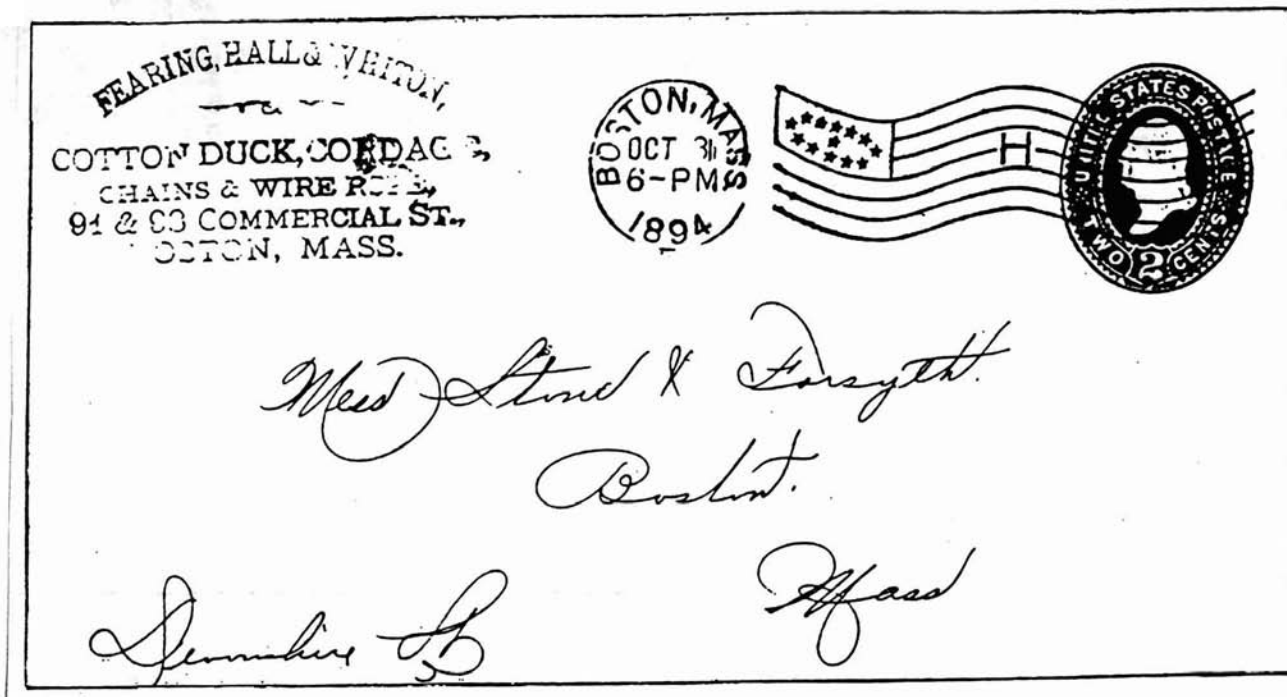 FEARING, HALL & WHITON,
COTTON DUCK, CORDAGE,
CHAINS & WIRE ROPE,
91 & 93 COMMERCIAL ST.,
BOSTON, MASS.
BOSTON, MASS
OCT 31
6-PM
1894
H
UNITED STATES POSTAGE
TWO 2 CENTS
Mess Stone & Forsyth.
Boston.
Mass
Devonshire St